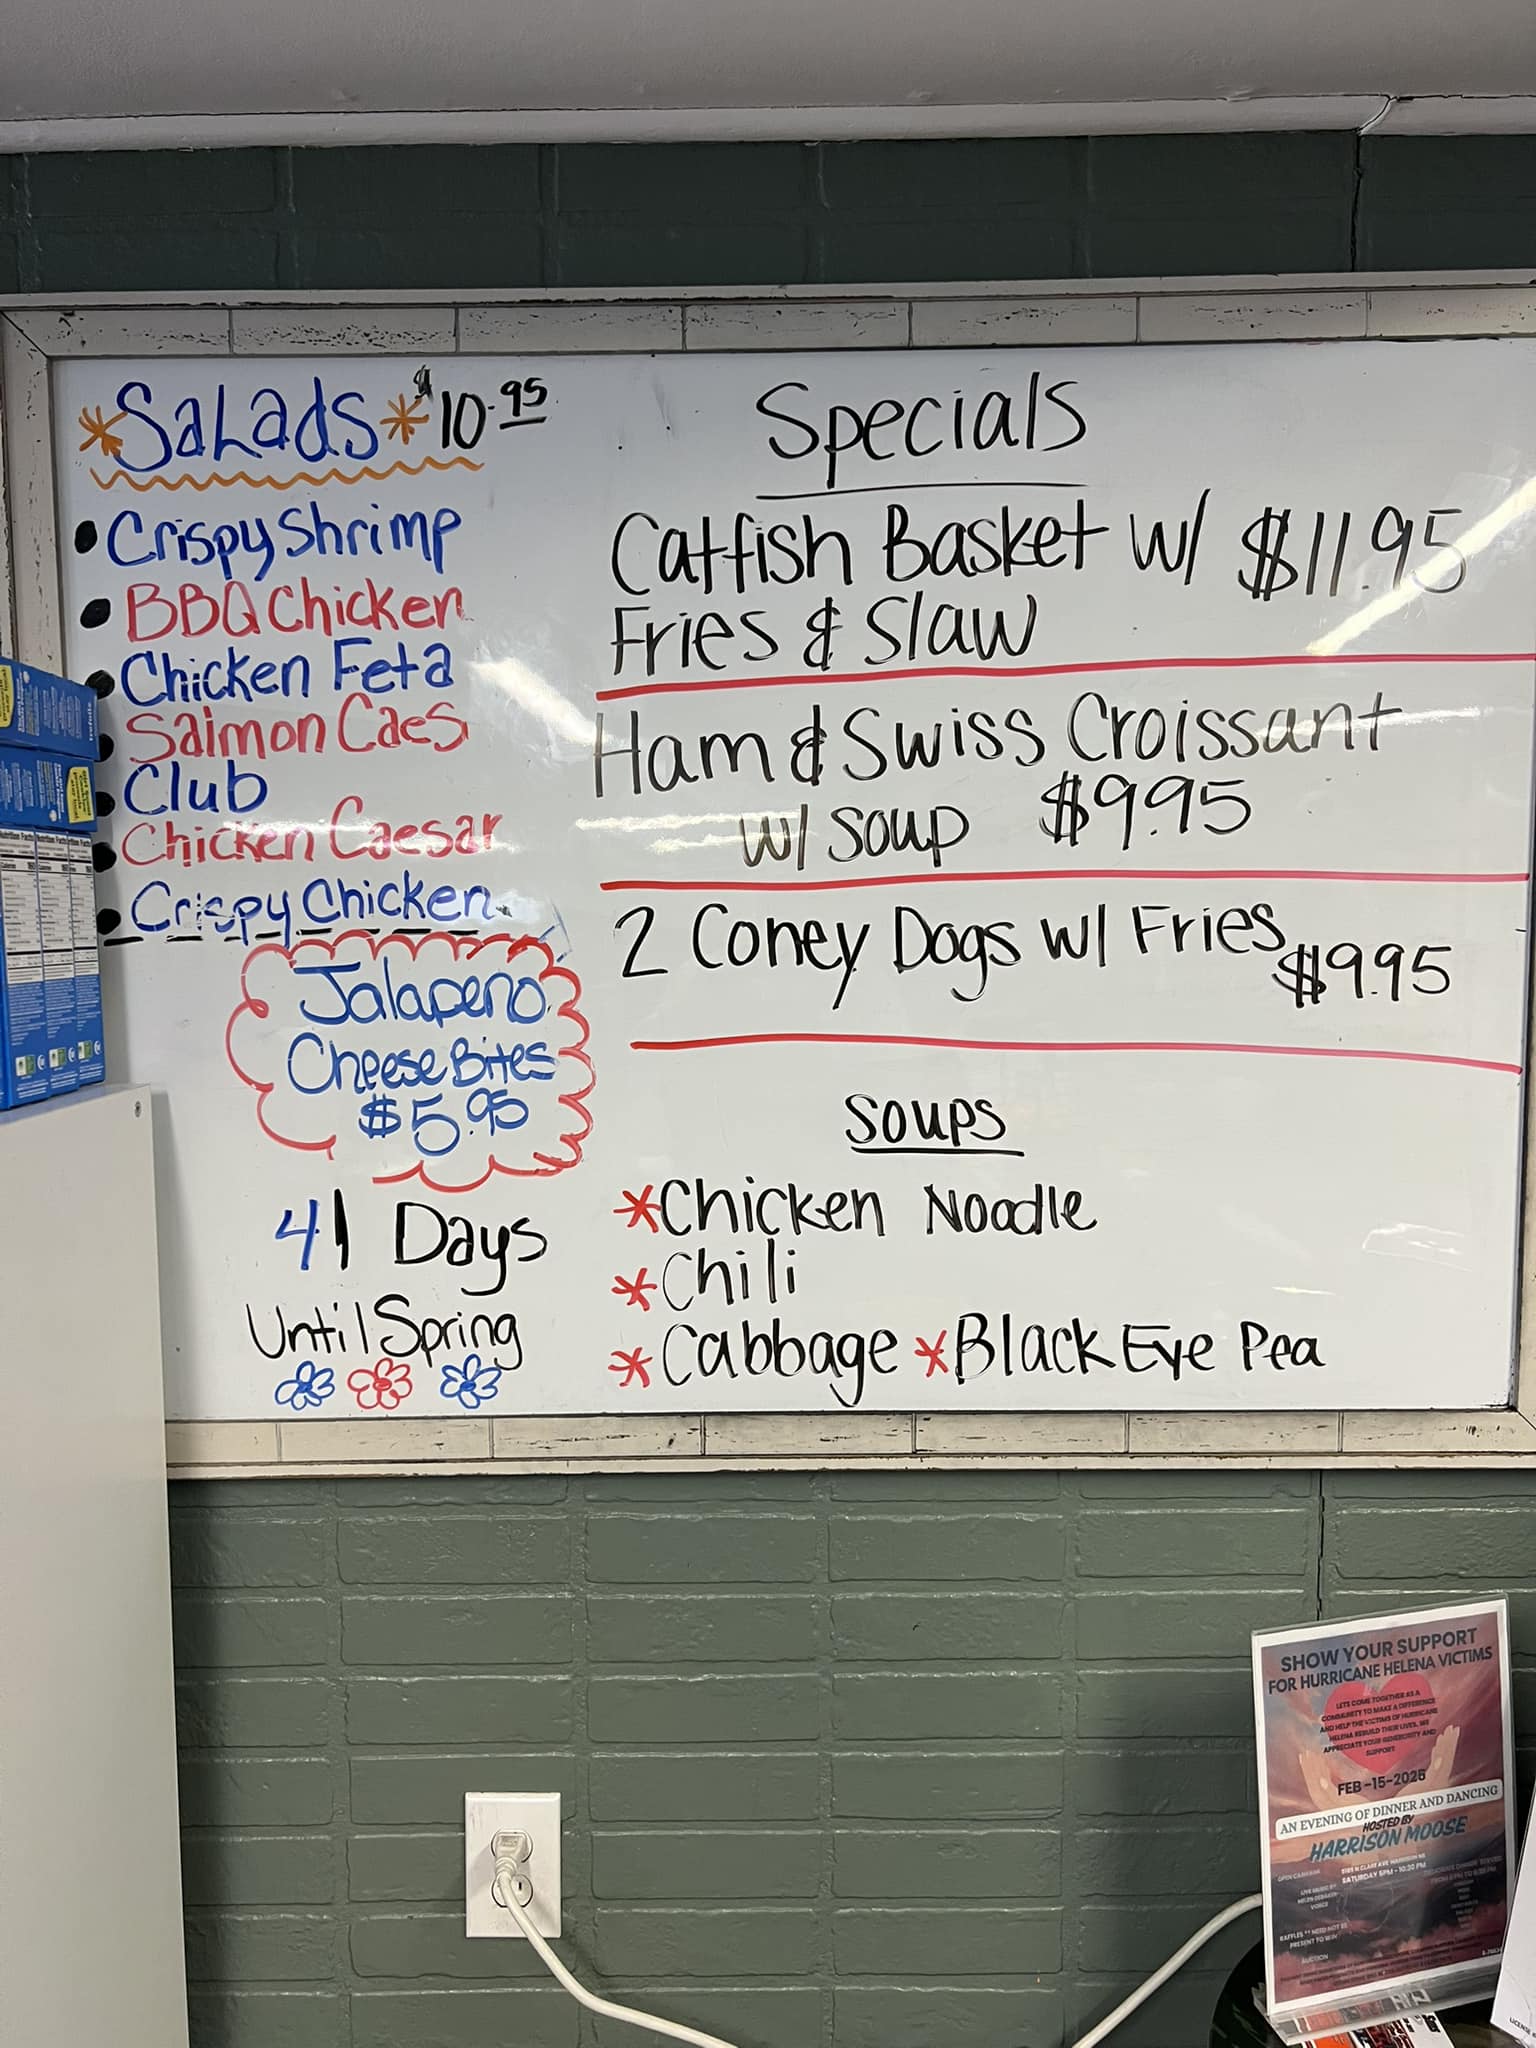 *Salads* $10.95
• Crispy Shrimp
• BBQ Chicken
• Chicken Feta
• Salmon Caes
• Club
• Chicken Caesar
• Crispy Chicken
Jalapeno
Cheese Bites
$5.95
41 Days
Until Spring
Specials
Catfish Basket w/ $11.95
Fries & Slaw
Ham & Swiss Croissant
w/ Soup $9.95
2 Coney Dogs w/ Fries
$9.95
Soups
*Chicken Noodle
*Chili
*Cabbage *Black Eye Pea
SHOW YOUR SUPPORT
FOR HURRICANE HELENA VICTIMS
LETS COME TOGETHER AS A
COMMUNITY TO MAKE A DIFFERENCE
AND HELP THE VICTIMS OF HURRICANE
HELENA REBUILD THEIR LIVES. WE
APPRECIATE YOUR GENEROSITY AND
SUPPORT
FEB-15-2025
AN EVENING OF DINNER AND DANCING
HOSTED BY
HARRISON MOOSE
SATURDAY 5PM - 10:30 PM
LIVE MUSIC BY
RAFFLES ** NEED NOT BE
PRESENT TO WIN
AUCTION